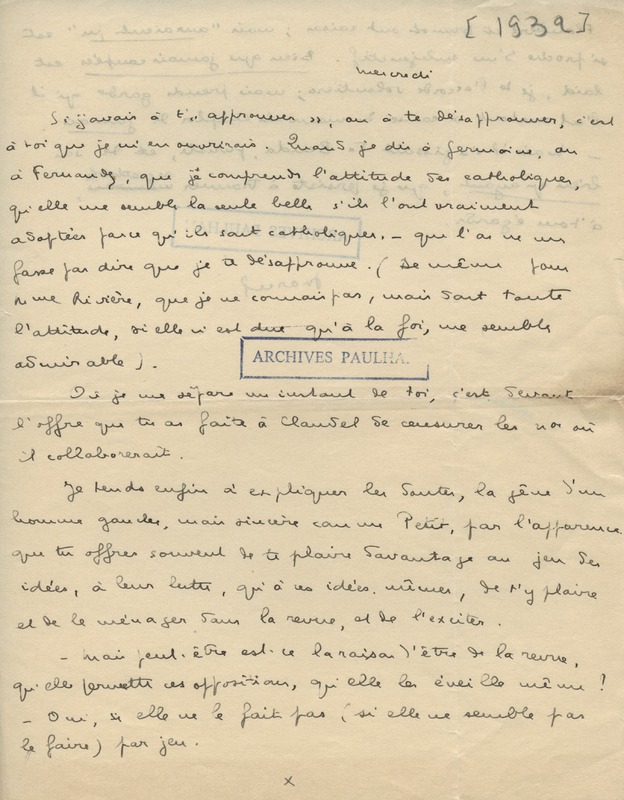 [1932]
mercredi
Si j'avais à t'« approuver », ou à te désapprouver, c'est
à toi que je m'en ouvrirais. Quand je dis à Germaine, ou
à Fernandez, que je comprends l'attitude des catholiques,
qu'elle me semble la seule belle s'ils l'ont vraiment
adoptée parce qu'ils sont catholiques. – qu'l'on ne me
fasse pas dire que je te désapprouve. (De même pour
Mme Rivière, que je ne connais pas, mais dont toute
l'attitude, si elle n'est due qu'à la foi, me semble
admirable).
ARCHIVES PAULHA
Où je me sépare un instant de toi, c'est devant
l'offre que tu as faite à Claudel de censurer les nos où
il collaborerait.
Je tends enfin à expliquer les doutes, la gêne d'un
homme gauche, mais sincère comme Petit, par l'apparence
que tu offres souvent de te plaire davantage au jeu des
idées, à leur lutte, qu'à ces idées mêmes, de t'y plaire
et de le ménager dans la revue, et de l'exciter.
– Mais peut-être est-ce la raison d'être de la revue,
qu'elle permette ces oppositions, qu'elle les éveille même !
– Oui, si elle ne le fait pas (si elle ne semble pas
le faire) par jeu.
x